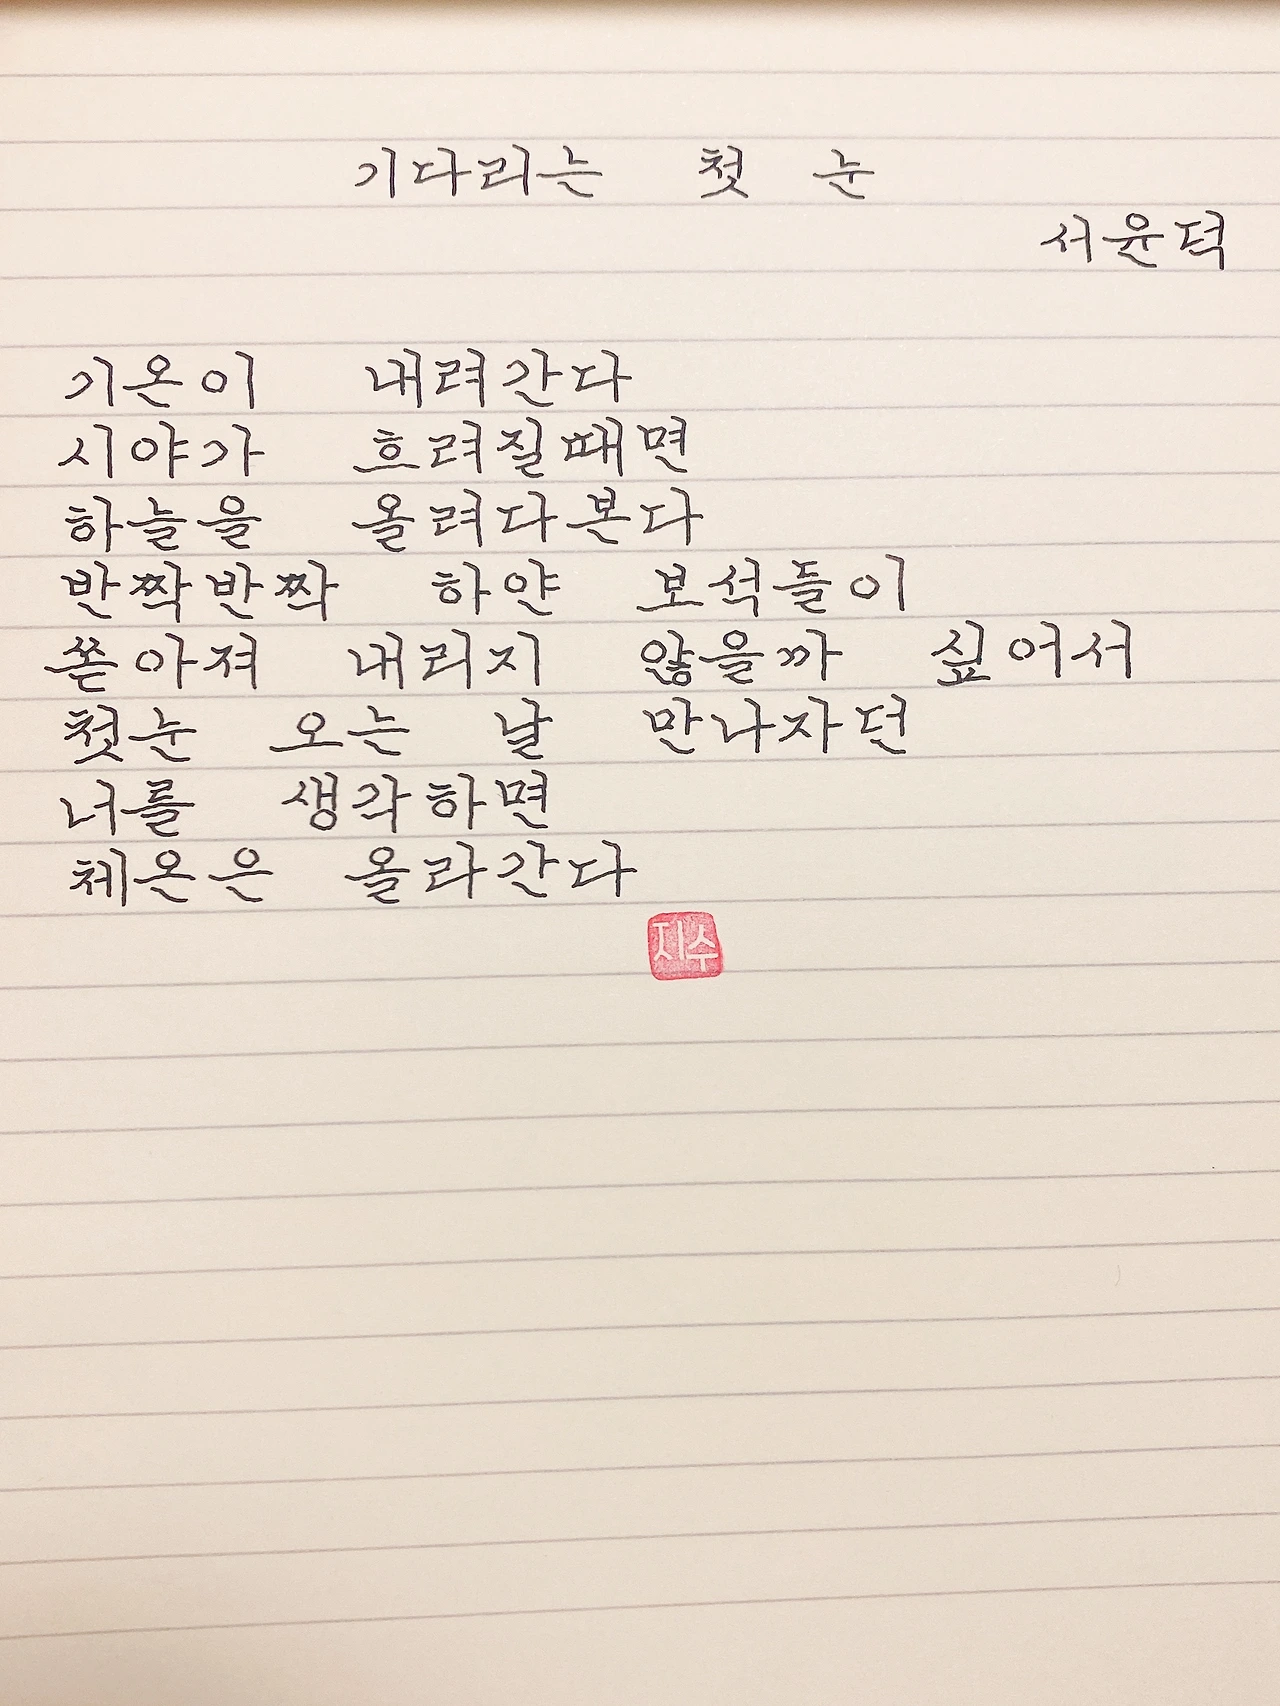 기다리는 첫 눈
서윤덕
기온이 내려간다
시야가 흐려질때면
하늘을 올려다본다
반짝반짝 하얀 보석들이
쏟아져 내리지 않을까 싶어서
첫눈 오는 날 만나자던
너를 생각하면
체온은 올라간다
지수